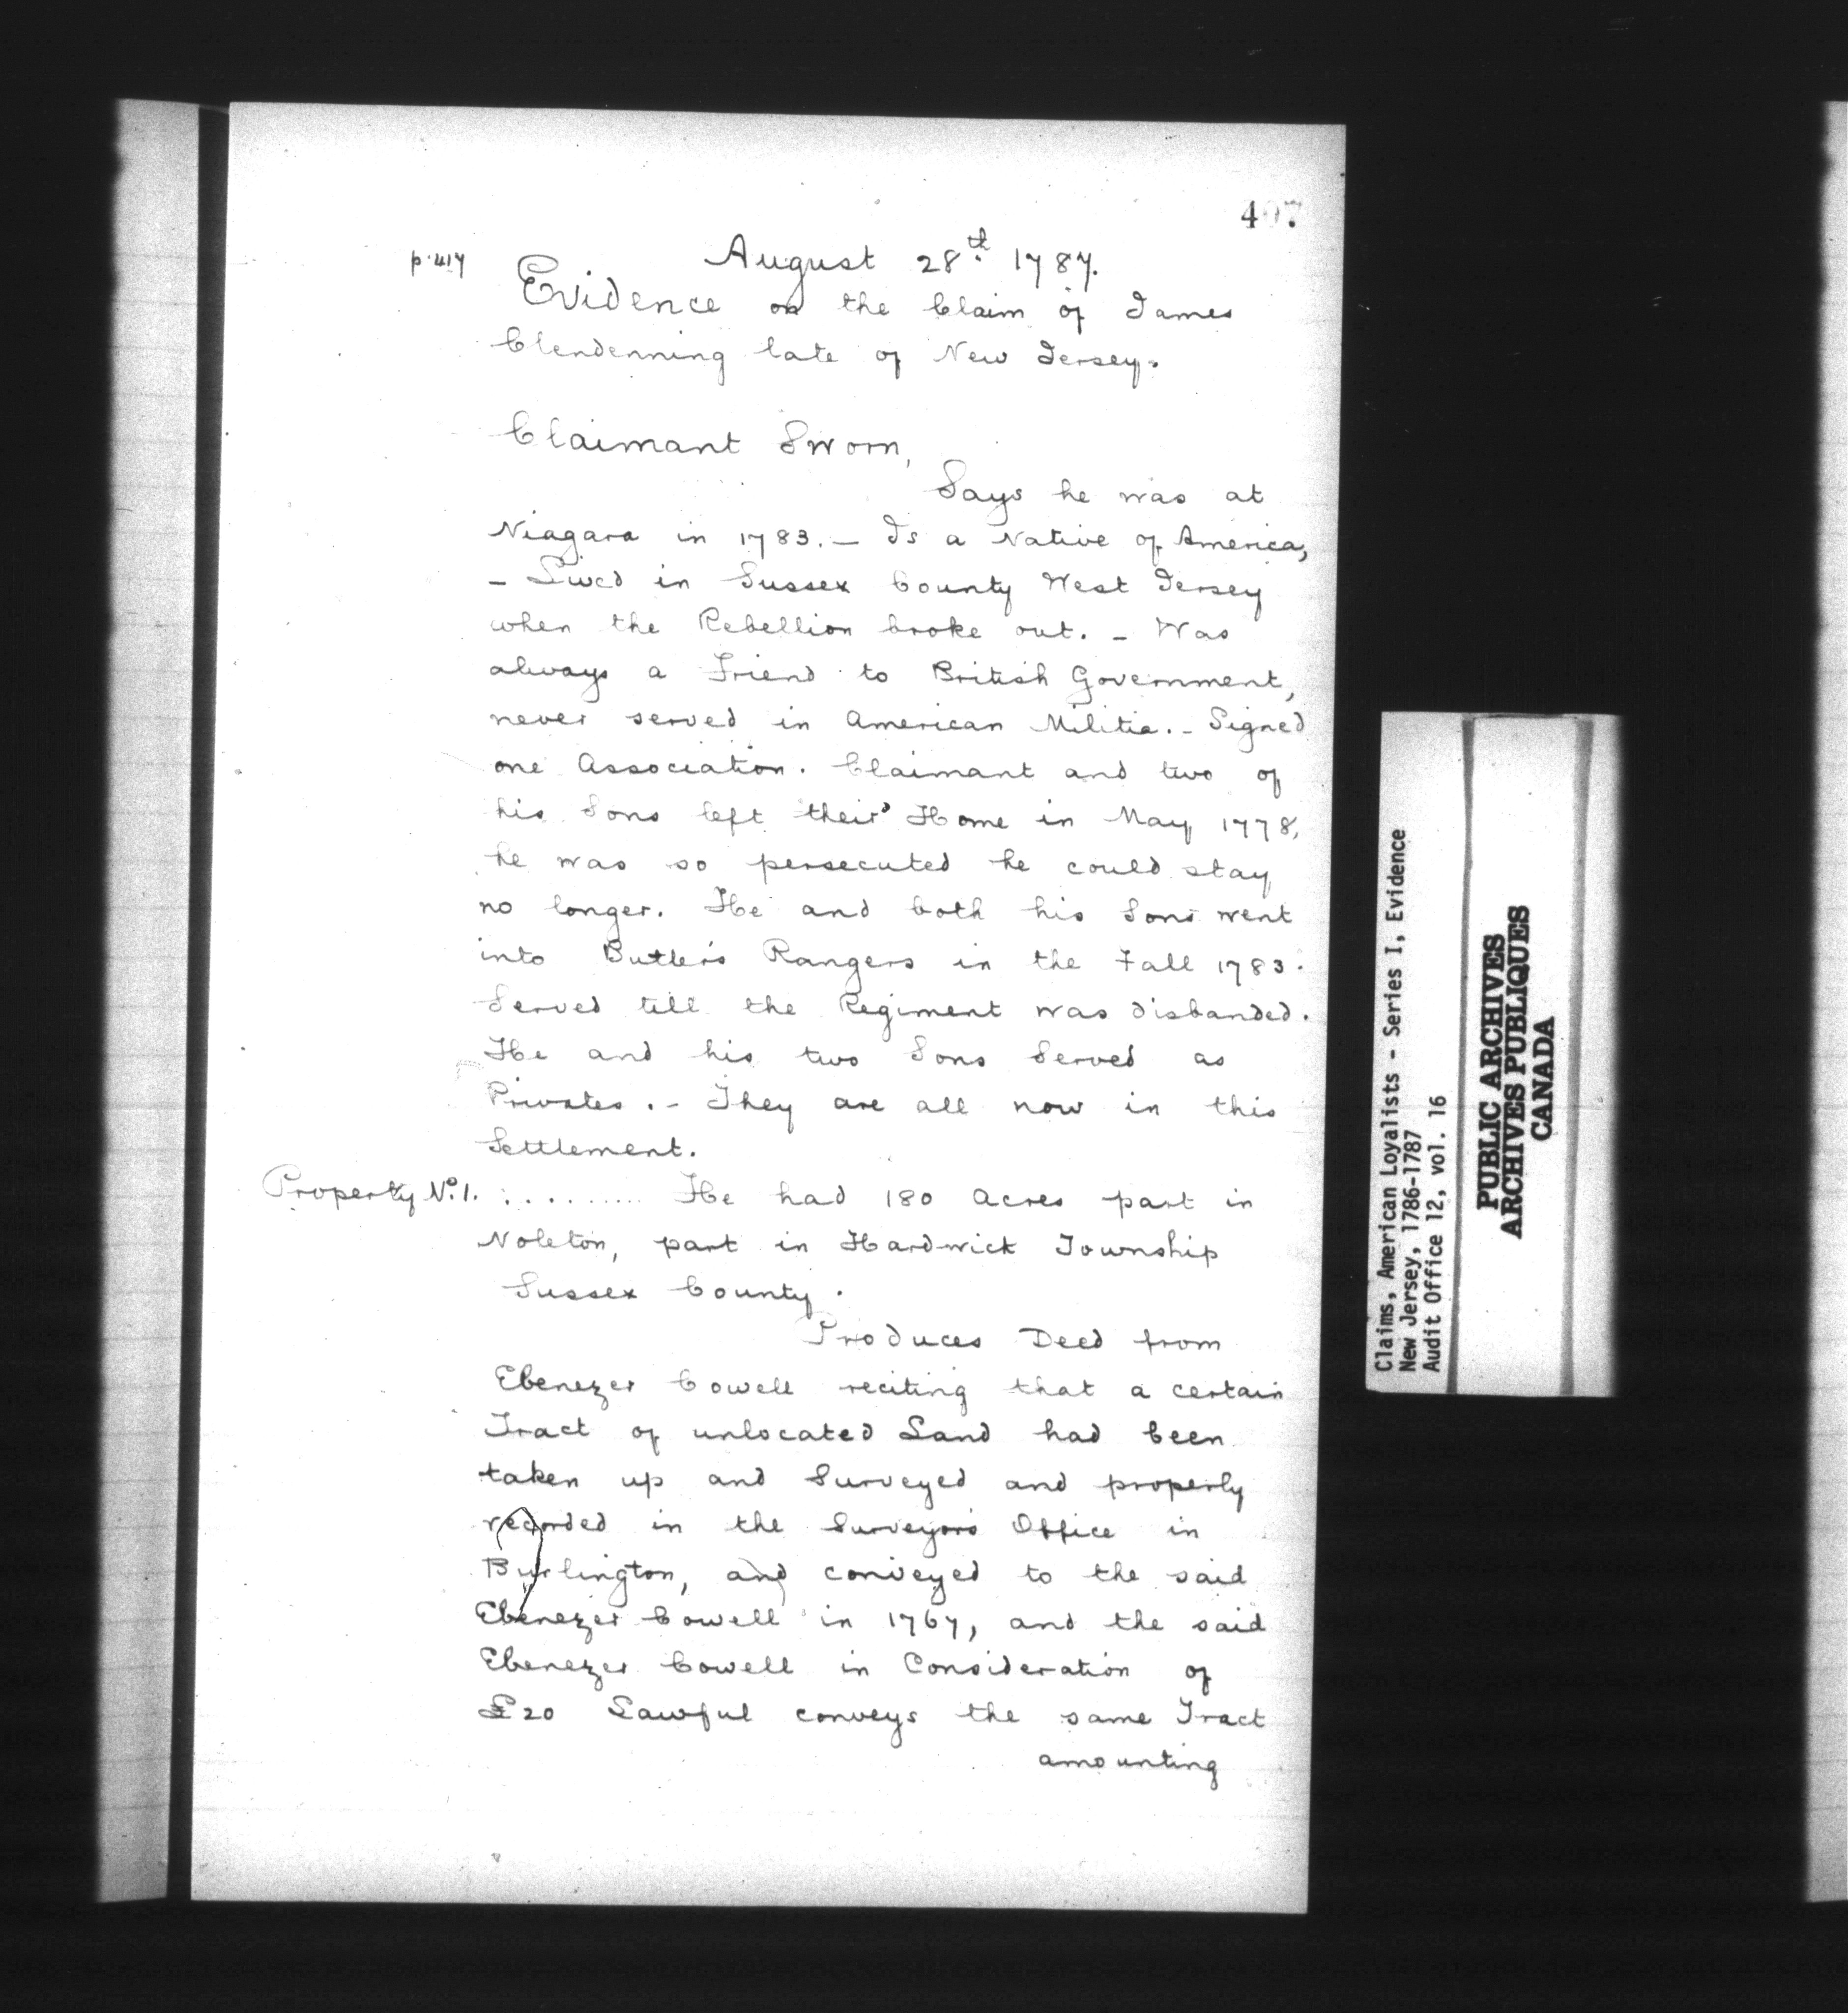 407
p. 417
August 28th 1787.
Evidence on the Claim of James
Clendenning late of New Jersey.
Claimant Sworn,
Says he was at
Niagara in 1783. — Is a Native of America,
— Lived in Sussex County West Jersey
when the Rebellion broke out. — Was
always a Friend to British Government,
never served in American Militia. — Signed
one Association. Claimant and two of
his Sons left their Home in May 1778,
he was so persecuted he could stay
no longer. He and both his Sons went
into Butler's Rangers in the Fall 1783.
Served till the Regiment was disbanded.
He and his two Sons Served as
Privates. — They are all now in this
Settlement.
Property No. 1. : ......... He had 180 Acres part in
Noleton, part in Hardwick Township
Sussex County.
Produces Deed from
Ebenezer Cowell reciting that a certain
Tract of unlocated Land had been
taken up and Surveyed and properly
recorded in the Surveyors Office in
Burlington, and conveyed to the said
Ebenezer Cowell in 1767, and the said
Ebenezer Cowell in Consideration of
£20 Lawful conveys the same Tract
amounting
Claims, American Loyalists - Series I, Evidence
New Jersey, 1786-1787
Audit Office 12, vol. 16
PUBLIC ARCHIVES
ARCHIVES PUBLIQUES
CANADA